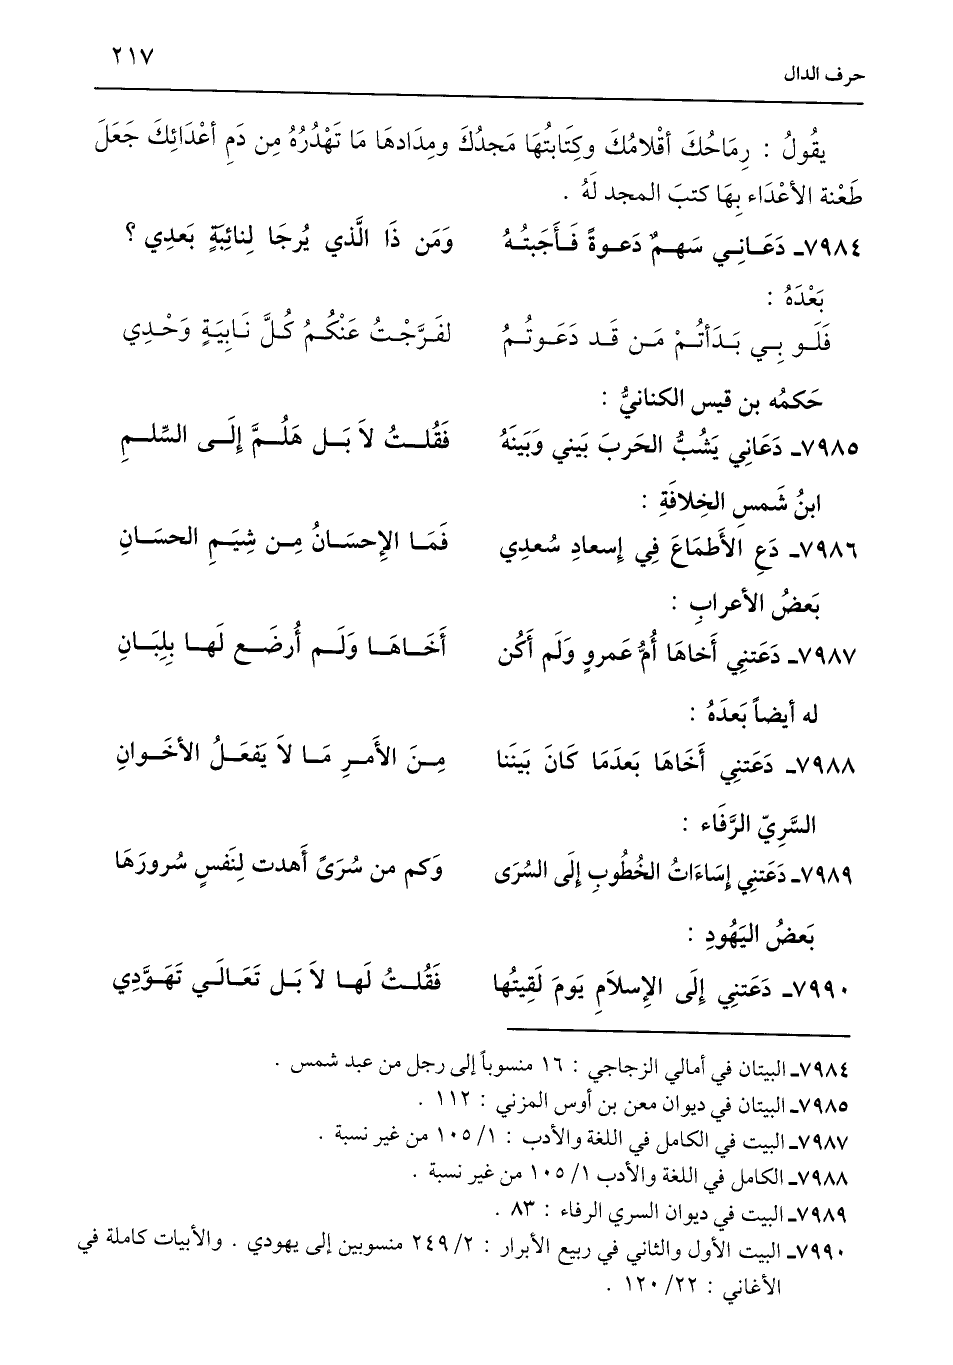 ٢١٧
حرف الدال
يقُولُ : رِمَاحُكَ أقْلامُكَ وكِتَابتُهَا مَجدُكَ ومِدَادهَا مَا تَهْدُرُهُ مِن دَمِ أعْدَائِكَ جَعَلَ
طَعْنة الأعْدَاء بِهَا كتبَ المجد لَهُ .
٧٩٨٤ـ دَعَـانِـي سَهـمٌ دَعـوةً فَـأَجَبتُـهُ وَمَن ذَا الَّذي يُرجَا لِنائِبَةٍ بَعدِي ؟
بَعْدَهُ :
فَلَـو بِـي بَـدَأتُـمْ مَـن قَـد دَعَـوتُـم لفَـرَّجْـتُ عَنْكُـمُ كُلَّ نَـابِيَـةٍ وَحْـدِي
حَكمُه بن قيس الكنانيُّ :
٧٩٨٥ـ دَعَانِي يَشُبُّ الحَربَ بَيني وَبَينَهُ فَقُلـتُ لاَ بَـل هَلُـمَّ إِلَـى السِّلـمِ
ابنُ شَمسِ الخِلافَةِ :
٧٩٨٦ـ دَعِ الأَطمَاعَ فِي إِسعادِ سُعدِي فَمَـا الإِحسَـانُ مِـن شِيَـمِ الحسَـانِ
بَعضُ الأعرابِ :
٧٩٨٧ـ دَعَتنِي أَخاهَا أُمُّ عَمروٍ وَلَم أَكُن أَخَـاهَـا وَلَـم أُرضَـع لَهـا بِلِبَـانِ
له أيضاً بَعدَهُ :
٧٩٨٨ـ دَعَتنِي أَخَاهَا بَعدَمَا كَانَ بَينَنا مِـنَ الأَمـرِ مَـا لاَ يَفعَـلُ الأخَـوانِ
السَّرِيّ الرَّفَاء :
٧٩٨٩ـ دَعَتنِي إِسَاءَاتُ الخُطُوبِ إِلَى السُرَى وَكم من سُرَىً أَهدت لِنَفسٍ سُرورَهَا
بَعضُ اليَهُودِ :
٧٩٩٠ـ دَعَتنِي إِلَى الإِسلاَمِ يَومَ لَقِيتُها فَقُلـتُ لَهـا لاَ بَـل تَعَـالَـي تَهَـوَّدِي
٧٩٨٤ـ البيتان في أمالي الزجاجي : ١٦ منسوباً إلى رجل من عبد شمس .
٧٩٨٥ـ البيتان في ديوان معن بن أوس المزني : ١١٢ .
٧٩٨٧ـ البيت في الكامل في اللغة والأدب : ١/ ١٠٥ من غير نسبة .
٧٩٨٨ـ الكامل في اللغة والأدب ١/ ١٠٥ من غير نسبة .
٧٩٨٩ـ البيت في ديوان السري الرفاء : ٨٣ .
٧٩٩٠ـ البيت الأول والثاني في ربيع الأبرار : ٢/ ٢٤٩ منسوبين إلى يهودي . والأبيات كاملة في
الأغاني : ٢٢/ ١٢٠ .